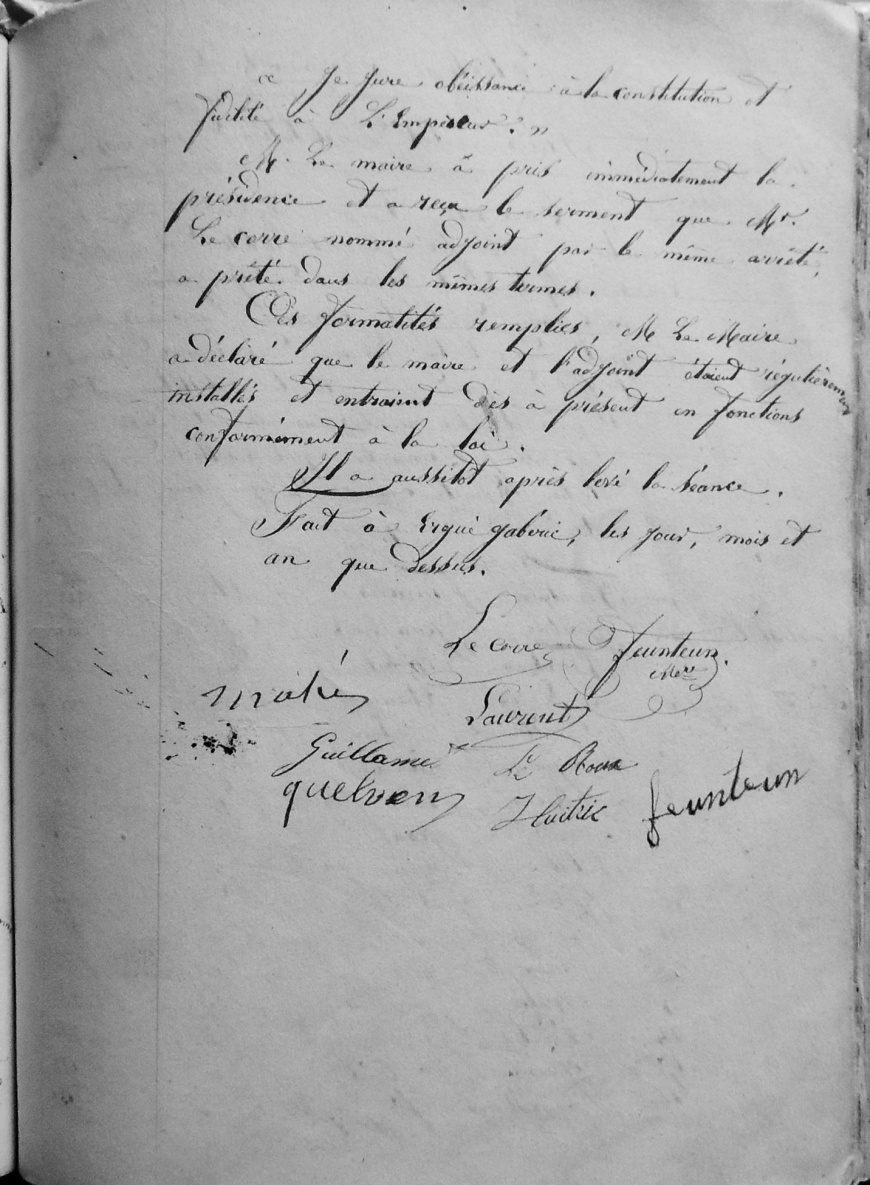 « Je Jure obéissance à la constitution et
fidélité à L'Empereur. »
M. Le maire à pris immédiatement la
présidence et a reçu le serment que Mr.
Le corre nommé adjoint par le même arrêté,
a prêté dans les mêmes termes.
Ces formalités remplies, M Le Maire
a déclaré que le maire et l'adjoint étaient régulièrement
installés et entraient dès à présent en fonctions
conformément à la loi.
Il a aussitôt après levé la séance.
Fait à Ergué gabéric, les jour, mois et
an que dessus.
Le Corre Feunteun
Mahé
Laurent
Guillame Le Roux
quelven Huitric feunteun